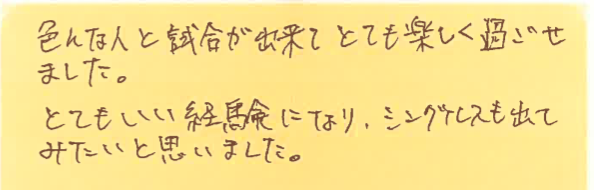 色んな人と試合が出来てとても楽しく過ごせ
ました。
とてもいい経験になり、シングルスも出て
みたいと思いました。